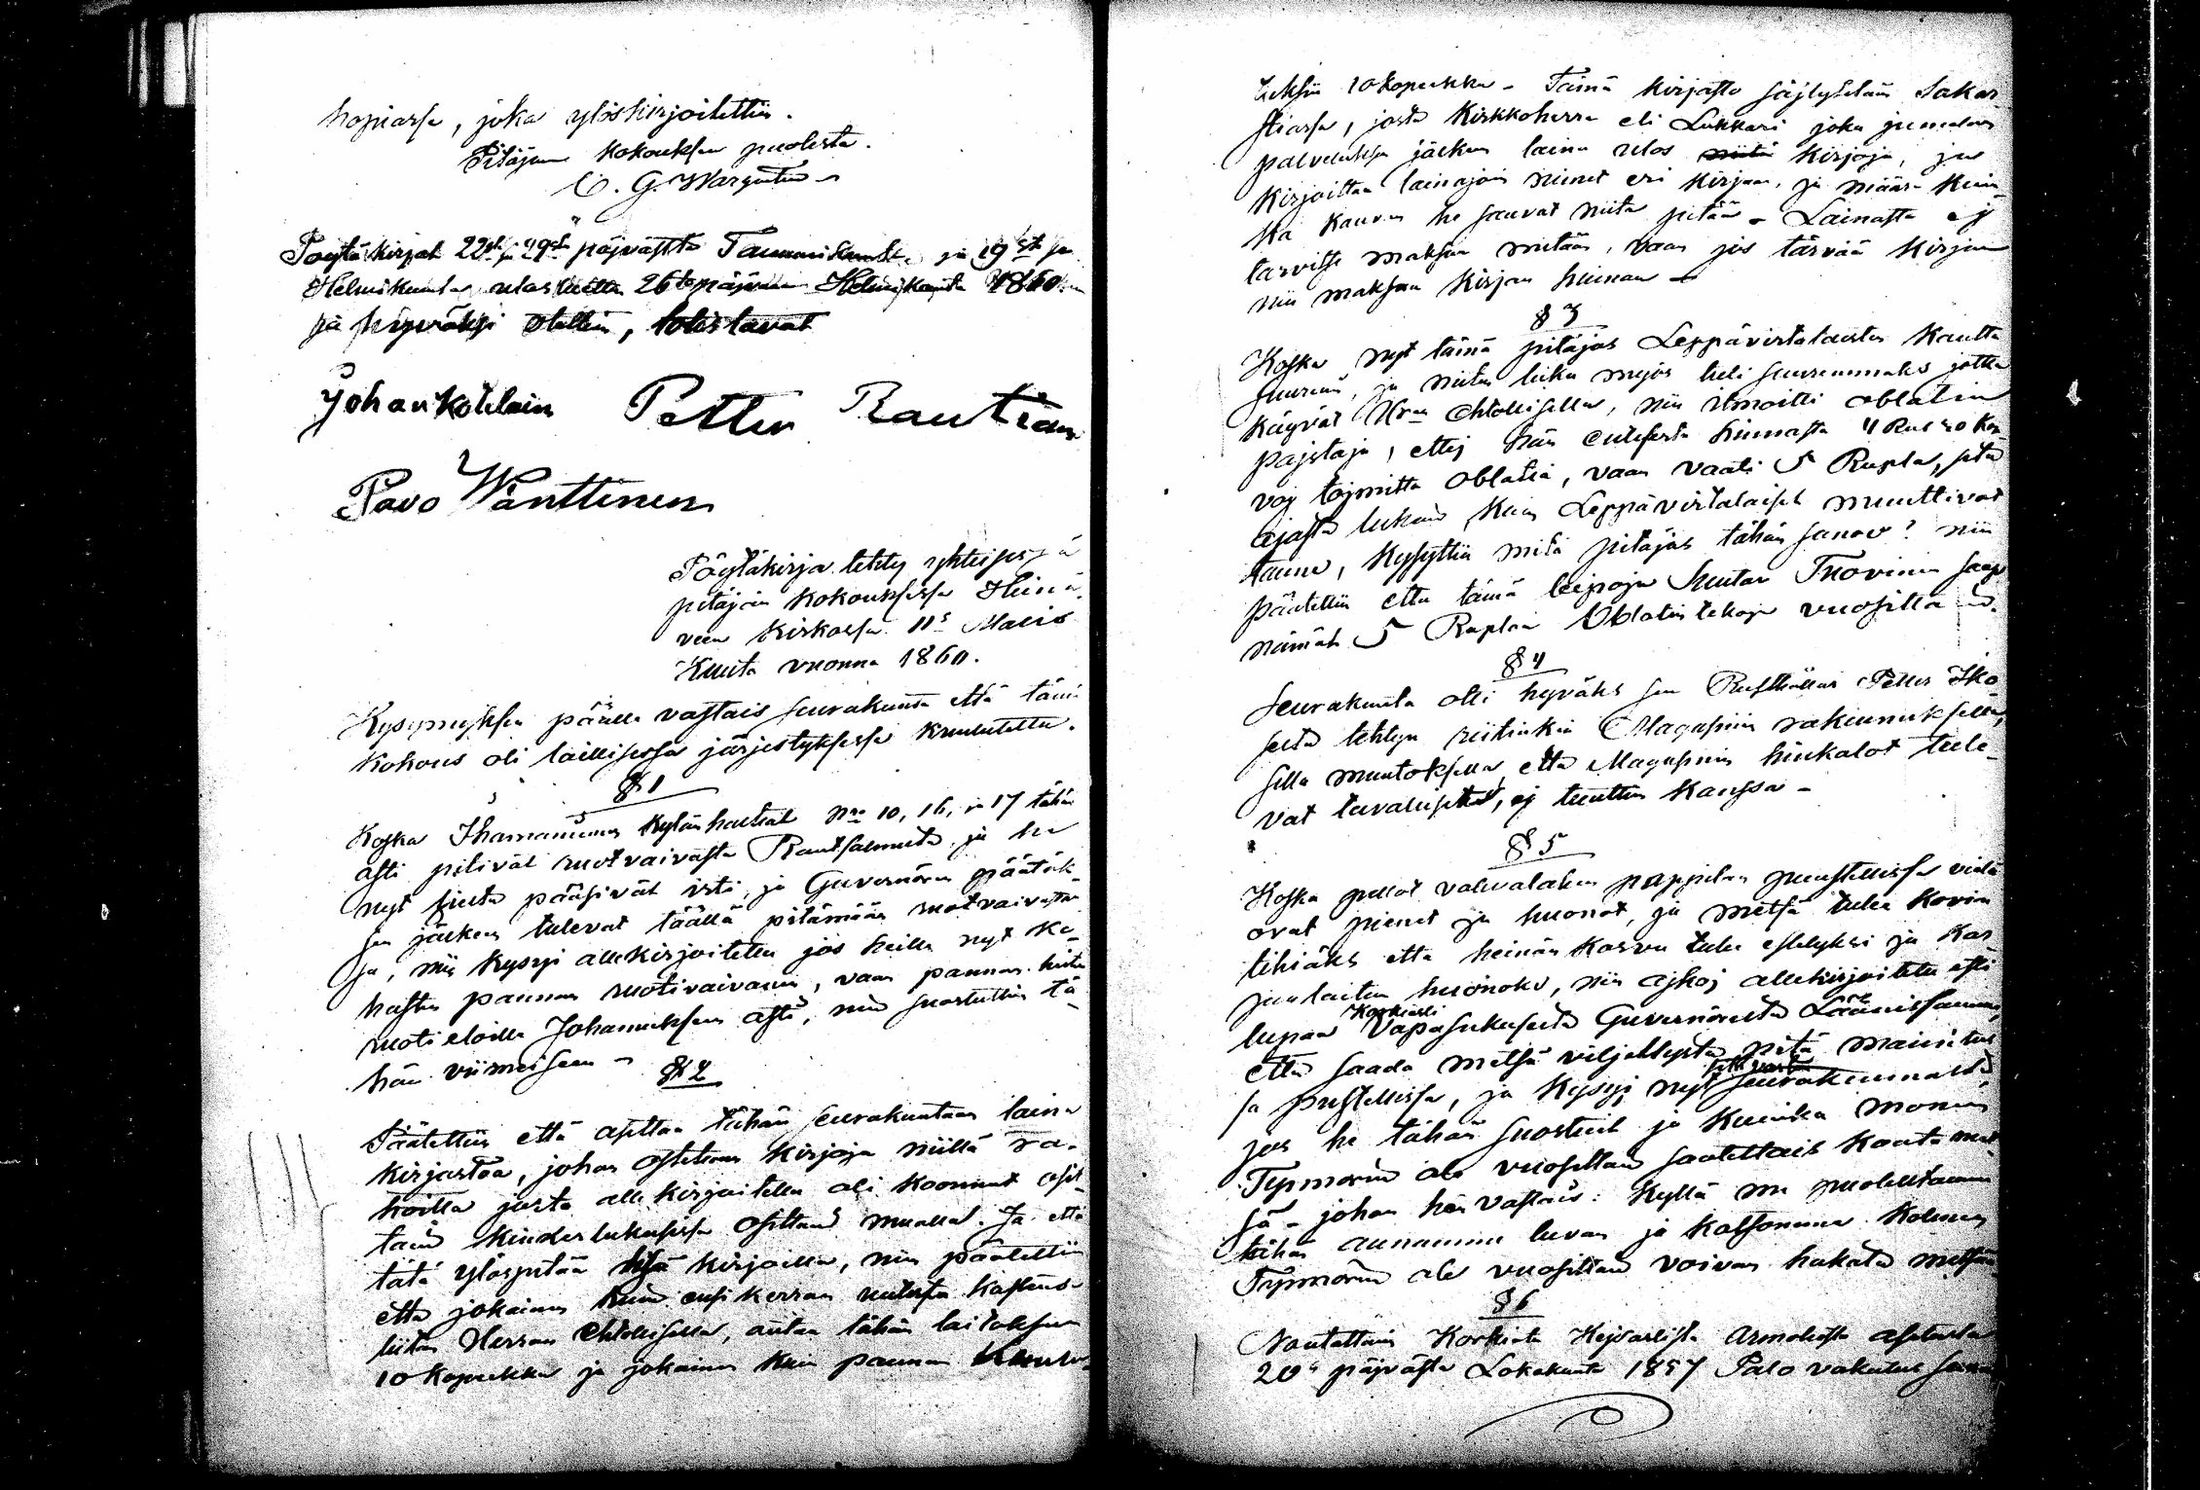 hopiassa, joka ylöskirjoitettiin.
Pitäjän Kokouksen puolesta.
C. G. Wargentin
Pöytäkirjat 22st ja 29st päjvästä Tammikuuta ja 19st ja
Helmikuuta ulosluettu 26te päjvänä Helmikuuta 1860
ja hyväksi otettiin, todistavat
Johan Kotelain Petter Rautiain
Pavo Wänttinen
Pöytäkirja tehty yhteisessä
pitäjän Kokouksessa Heinä-
veen Kirkossa 11s Maris
Kuuta vuonna 1860.
Kysymyksen päälle vastais seurakunta että tämä
Kokous oli laillisessa järjestyksessä kuulutettu.
§ 1
Koska Ihamaniemen Kylän haltiat No 10, 16, ja 17 tähän
asti pitivät ruotvaivasta Rantsalmesta ja he
nyt siitä pääsivät irti, ja Guvernörin päätök-
sen jälken tulevat täällä pitämään ruotvaivasta
sa, niin kysyi allekirjoitettu jos heille nyt ko-
hasta pannan ruotivaivainen, vaan pannan heitä
ruoti eloille Johanneksen asti, niin suostuttiin tä-
hän viimeiseen
§ 2
Päätettiin että asettaa tähän seurakuntaan laina
kirjastoa, johon ostetaan kirjoja niillä ra-
hoilla josta allekirjoitettu oli koonnut
tain kinderlukuisissa muualla. Ja että
tätä ylöspitää kirjoilla, niin päätettiin
että jokainen kuin ensikerran
Herran Ehtollisella, antaa tähän laitoksen
10 Kopeekka ja jokainen kuin pannan
10 kopeekka - Tämä kirjasto säjlytetään Sakar
stiassa, josta Kirkkoherra eli Lukkari joka jumalan
palveluksen jälken laina ulos kirjoja, ja
kirjoittaa lainajain nimet eri kirjaan, ja määrä kuin-
ka kauvan he sauvat niitä pitää - Lainasta ej
tarvitse maksaa mitään, vaan jos tärvää kirjan
niin maksaa kirjan hinnan
§ 3
Koska nyt tämä pitäjäs Leppävirtalaisten kautta
suureni, ja niiden luku myös tuli suuremmaks jotka
käyvät Hran Ehtollisella, niin ilmoitti oblatin
pajstaja, ettej hän entisestä hinnasta 4 Rub 20 Kop
voj tojmitta oblatia, vaan vaati 5 Rupla, sitä
ajasta lukein kuin Leppävirtalaiset muuttivat
tänne, kysyttiin mitä pitäjäs tähän sanov? niin
päätettiin että tämä leipoja Tuovinen saap
nimät 5 Ruplan Oblatin tekoja vuosilla
§ 4
Seurakunta otti hyväks sen Rusthållar Petter Iko-
sesta tehdyn riitinkin Magasinin rakennuksella,
sillä muutoksella, että Magasinin hinkalot tule-
vat tavalliset, ej kanssa -
§ 5
Koska pellot vähävaläken pappilan puustellissa vielä
ovat pienet ja huonot, ja metsä tulee kovin
tihiäks että heinän kasvu tulee estetyksi ja kar-
jan laitun huonoks, niin ajkoj allekirjoitettu
lupaa Korkiasti Vapasukusesta Guvernörista Läänissamme,
että saada metsä viljellystä pitä mainitus
sa pustellissa, ja kysyi nyt seurakunnalta,
jos he tähän suostuit ja kuinka monen
Tynnörin ala vuosittain saatettais kaata met
sä - johon hän vastais: Kyllä me puolestamme
tähän annamme luvan ja katsomme kolmen
Tynnörin ala vuosittain voivan hakata metsän
§ 6
Noutettain Korkiata Kejsarlista Armolista asetusta
20s päjvästä Lokakuuta 1857 Palo vakutus